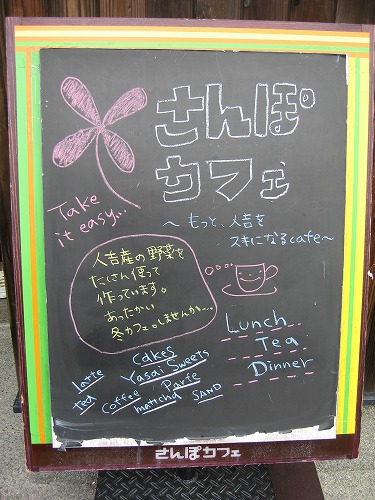 さんぽ
カフェ
Take
it easy...
～もっと、人吉を
スキになるcafe～
人吉産の野菜を
たくさん使って
作っています。
あったかい
冬カフェ。しませんか〜...
Lunch
Tea
Dinner
cakes
Latte
Yasai Sweets
Tea
Coffee
Parfe
matcha
SAND
さんぽカフェ